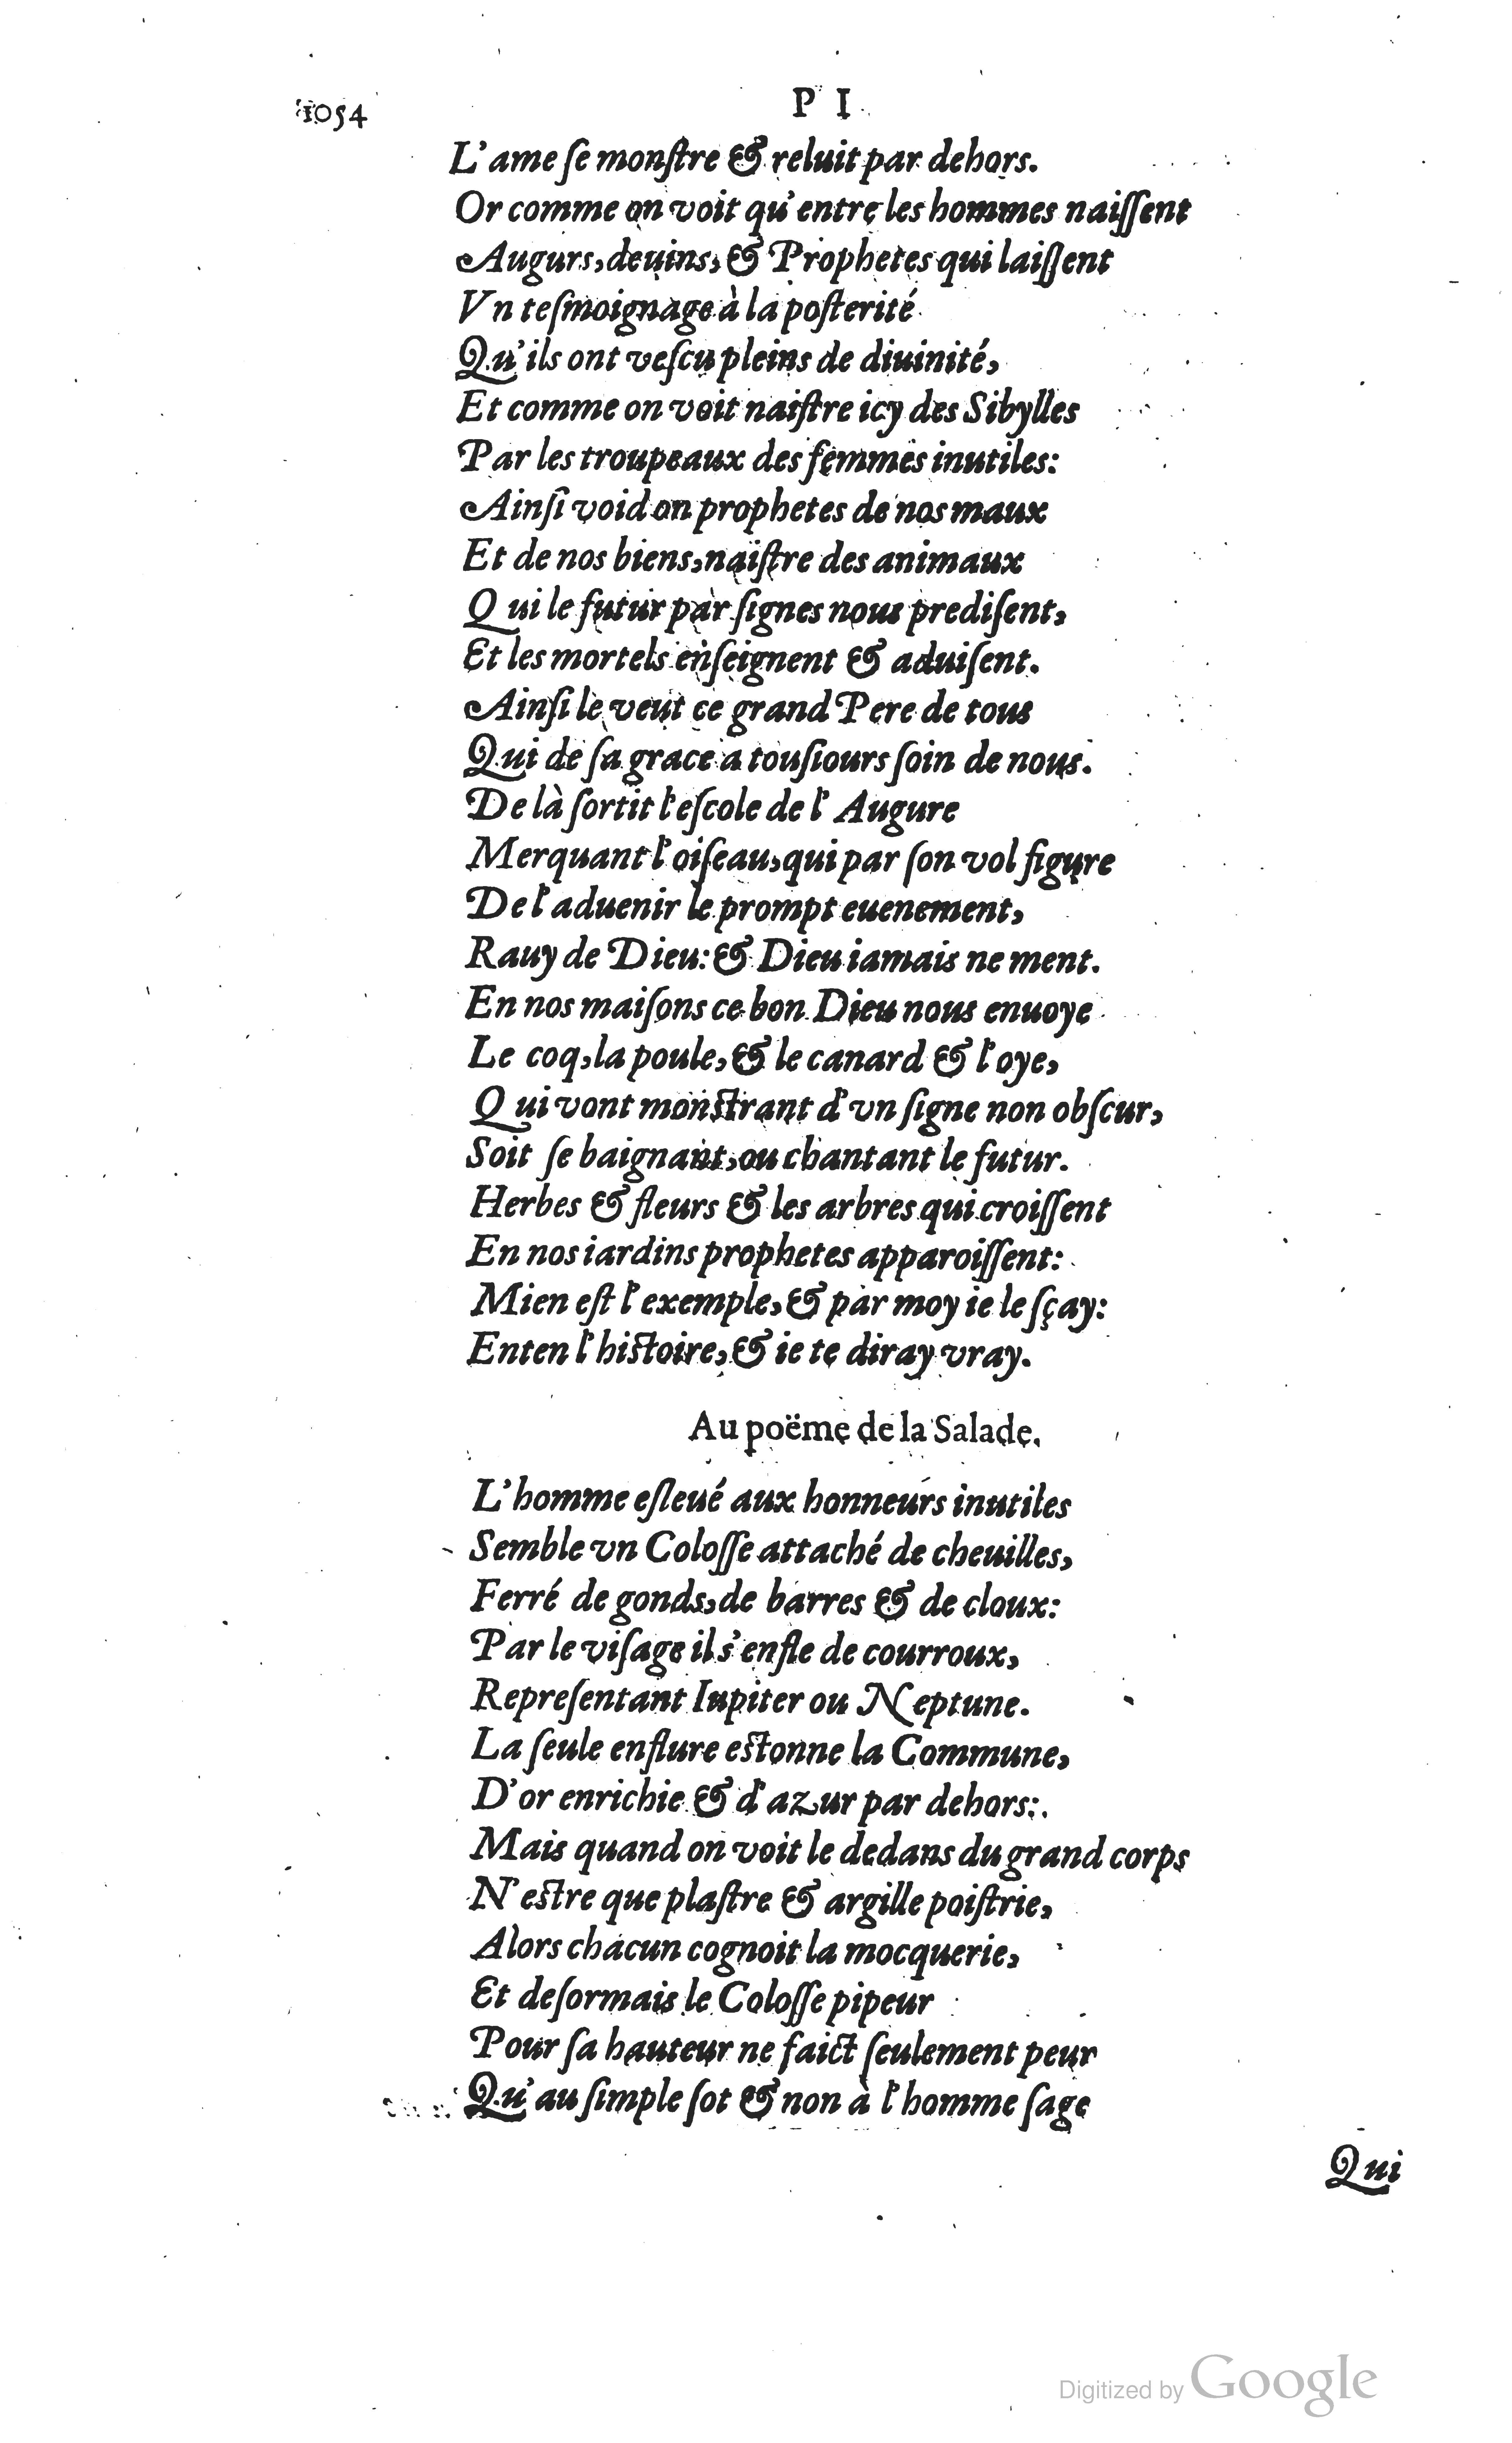 1054
P I
L'ame ſe monſtre & reluit par dehors.
Or comme on voit qu'entre les hommes naiſſent
Augurs, deuins, & Prophetes qui laiſſent
Vn teſmoignage à la poſterité
Qu'ils ont veſcu pleins de diuinité,
Et comme on voit naiſtre icy des Sibylles
Par les troupeaux des femmes inutiles:
Ainſi void on prophetes de nos maux
Et de nos biens, naiſtre des animaux
Qui le futur par ſignes nous prediſent,
Et les mortels enſeignent & aduiſent.
Ainſi le veut ce grand Pere de tous
Qui de ſa grace a touſiours ſoin de nous.
De là ſortit l'eſcole de l'Augure
Merquant l'oiſeau, qui par ſon vol figure
De l'aduenir le prompt euenement,
Rauy de Dieu: & Dieu iamais ne ment.
En nos maiſons ce bon Dieu nous enuoye
Le coq, la poule, & le canard & l'oye,
Qui vont monſtrant d'vn ſigne non obſcur,
Soit ſe baignant, ou chantant le futur.
Herbes & fleurs & les arbres qui croiſſent
En nos iardins prophetes apparoiſſent:
Mien eſt l'exemple, & par moy ie le ſçay:
Enten l'hiſtoire, & ie te diray vray.
Au poëme de la Salade.
L'homme eſleué aux honneurs inutiles
Semble vn Coloſſe attaché de cheuilles,
Ferré de gonds, de barres & de cloux:
Par le viſage il s'enfle de courroux,
Repreſentant Iupiter ou Neptune.
La ſeule enflure eſtonne la Commune,
D'or enrichie & d'azur par dehors:
Mais quand on voit le dedans du grand corps
N'eſtre que plaſtre & argille poiſtrie,
Alors chacun cognoit la mocquerie,
Et deſormais le Coloſſe pipeur
Pour ſa hauteur ne faict ſeulement peur
Qu'au ſimple ſot & non à l'homme ſage
Qui
Digitized by Google